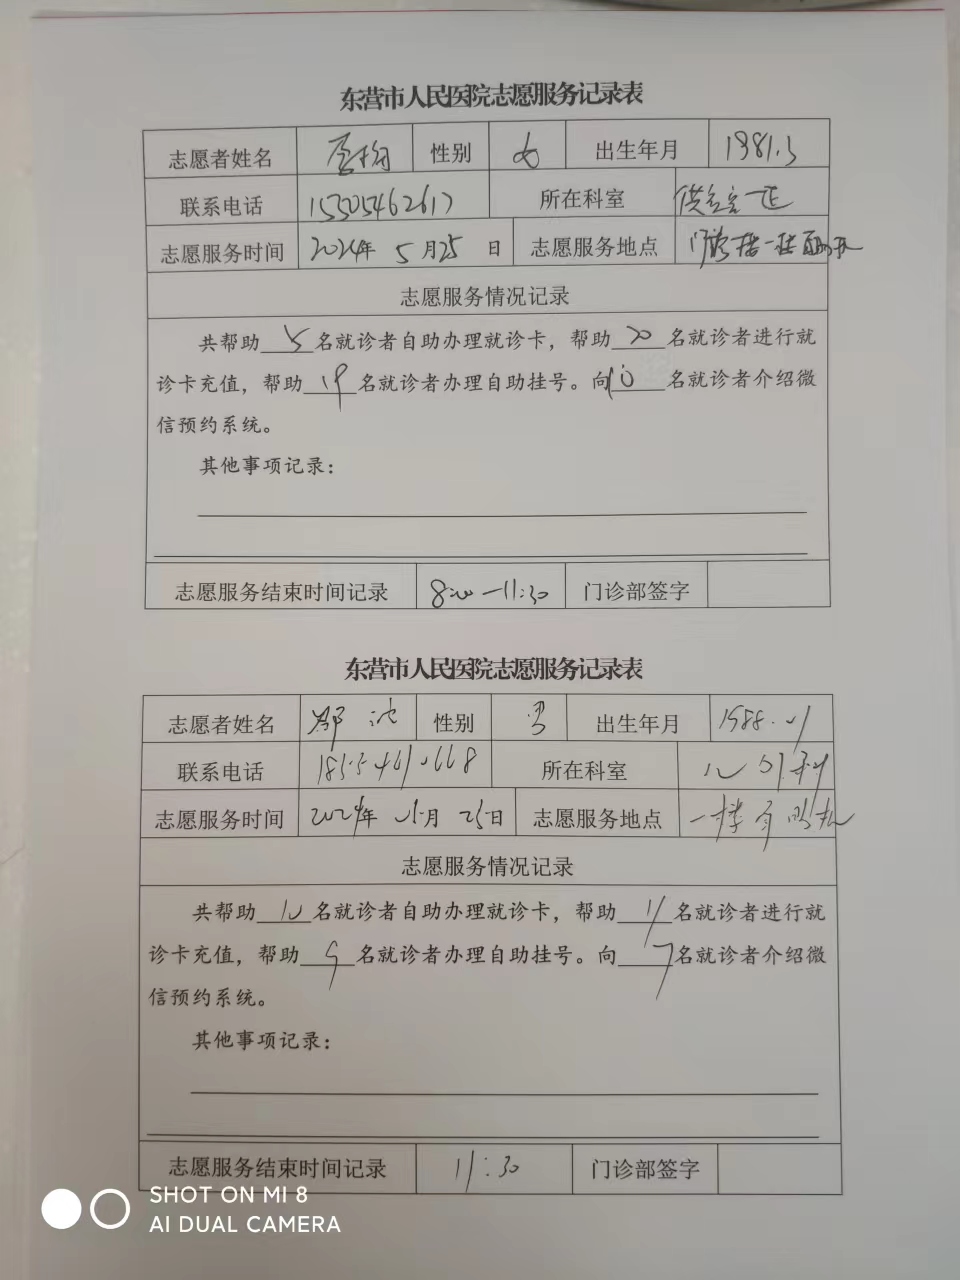 东营市人民医院志愿服务记录表
志愿者姓名 性别 女 出生年月 1981.3
联系电话 15305462617 所在科室
志愿服务时间 2024年 5月25日 志愿服务地点
志愿服务情况记录
共帮助 5 名就诊者自助办理就诊卡，帮助 20 名就诊者进行就
诊卡充值，帮助 19 名就诊者办理自助挂号。向 10 名就诊者介绍微
信预约系统。
其他事项记录：
志愿服务结束时间记录 8:00—11:30 门诊部签字
东营市人民医院志愿服务记录表
志愿者姓名 性别 男 出生年月 1988.
联系电话 所在科室
志愿服务时间 2024年 5月 25日 志愿服务地点 一楼
志愿服务情况记录
共帮助 10 名就诊者自助办理就诊卡，帮助 名就诊者进行就
诊卡充值，帮助 名就诊者办理自助挂号。向 7 名就诊者介绍微
信预约系统。
其他事项记录：
志愿服务结束时间记录 11:30 门诊部签字
SHOT ON MI 8
AI DUAL CAMERA